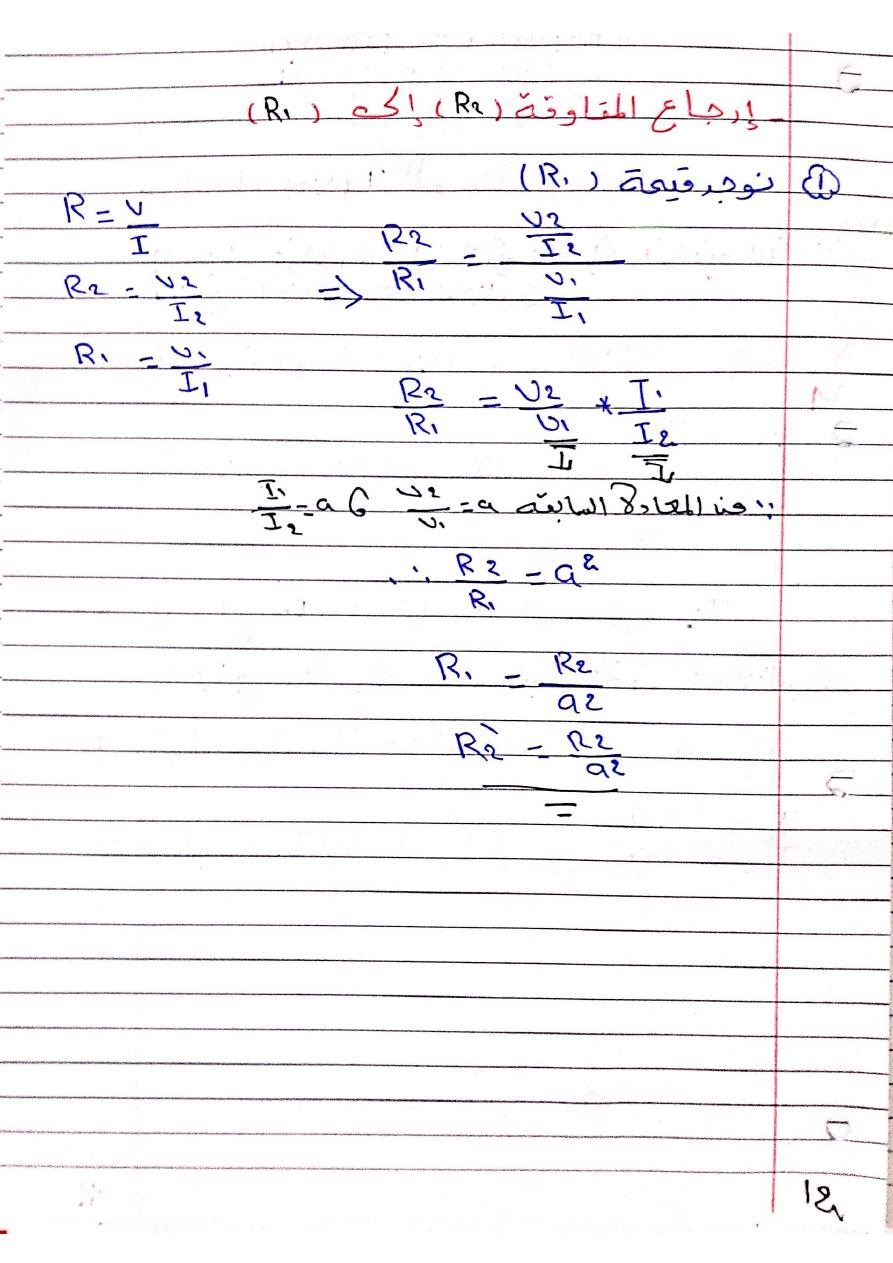 إرجاع المقاومة (R2) إلى (R1)
① نوجد قيمة (R1)
R = V/I
R2 = V2/I2 ⇒ R2/R1 = (V2/I2)/(V1/I1)
R1 = V1/I1
R2/R1 = V2/V1 * I1/I2
∵ من المعادلة السابقة V2/V1 = a و I1/I2 = a
∴ R2/R1 = a²
R1 = R2/a2
R2` = R2/a2
12